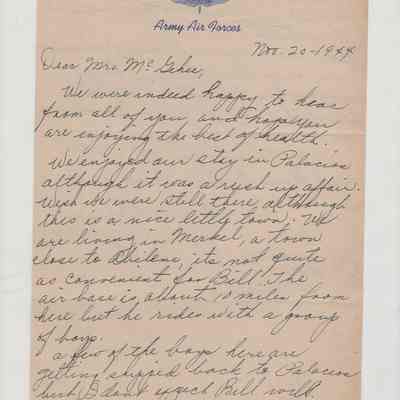 Army Air Forces
Nov. 20-1944
Dear Mrs. Mc Gehee,
We were indeed happy to hear
from all of you, and hope you
are enjoying the best of health.
We enjoyed our stay in Palacios
although it was a rush up affair.
Wish we were still there, although
this is a nice little town. We
are living in Merkel, a town
close to Abilene, its not quite
as convenient for Bill. The
air base is about 10 miles from
here but he rides with a group
of boys.
A few of the boys here are
getting shipped back to Palacios
but I dont expect Bill will.